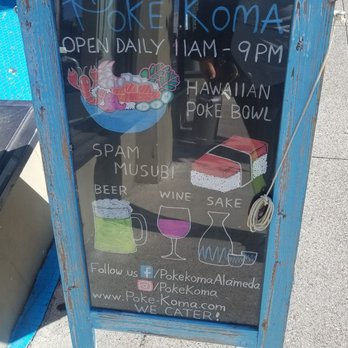 POKE KOMA
OPEN DAILY 11AM - 9PM
HAWAIIAN
POKE BOWL
SPAM
MUSUBI
BEER
WINE
SAKE
Follow us f/PokekomaAlameda
/PokeKoma
www.Poke-Koma.com
WE CATER!